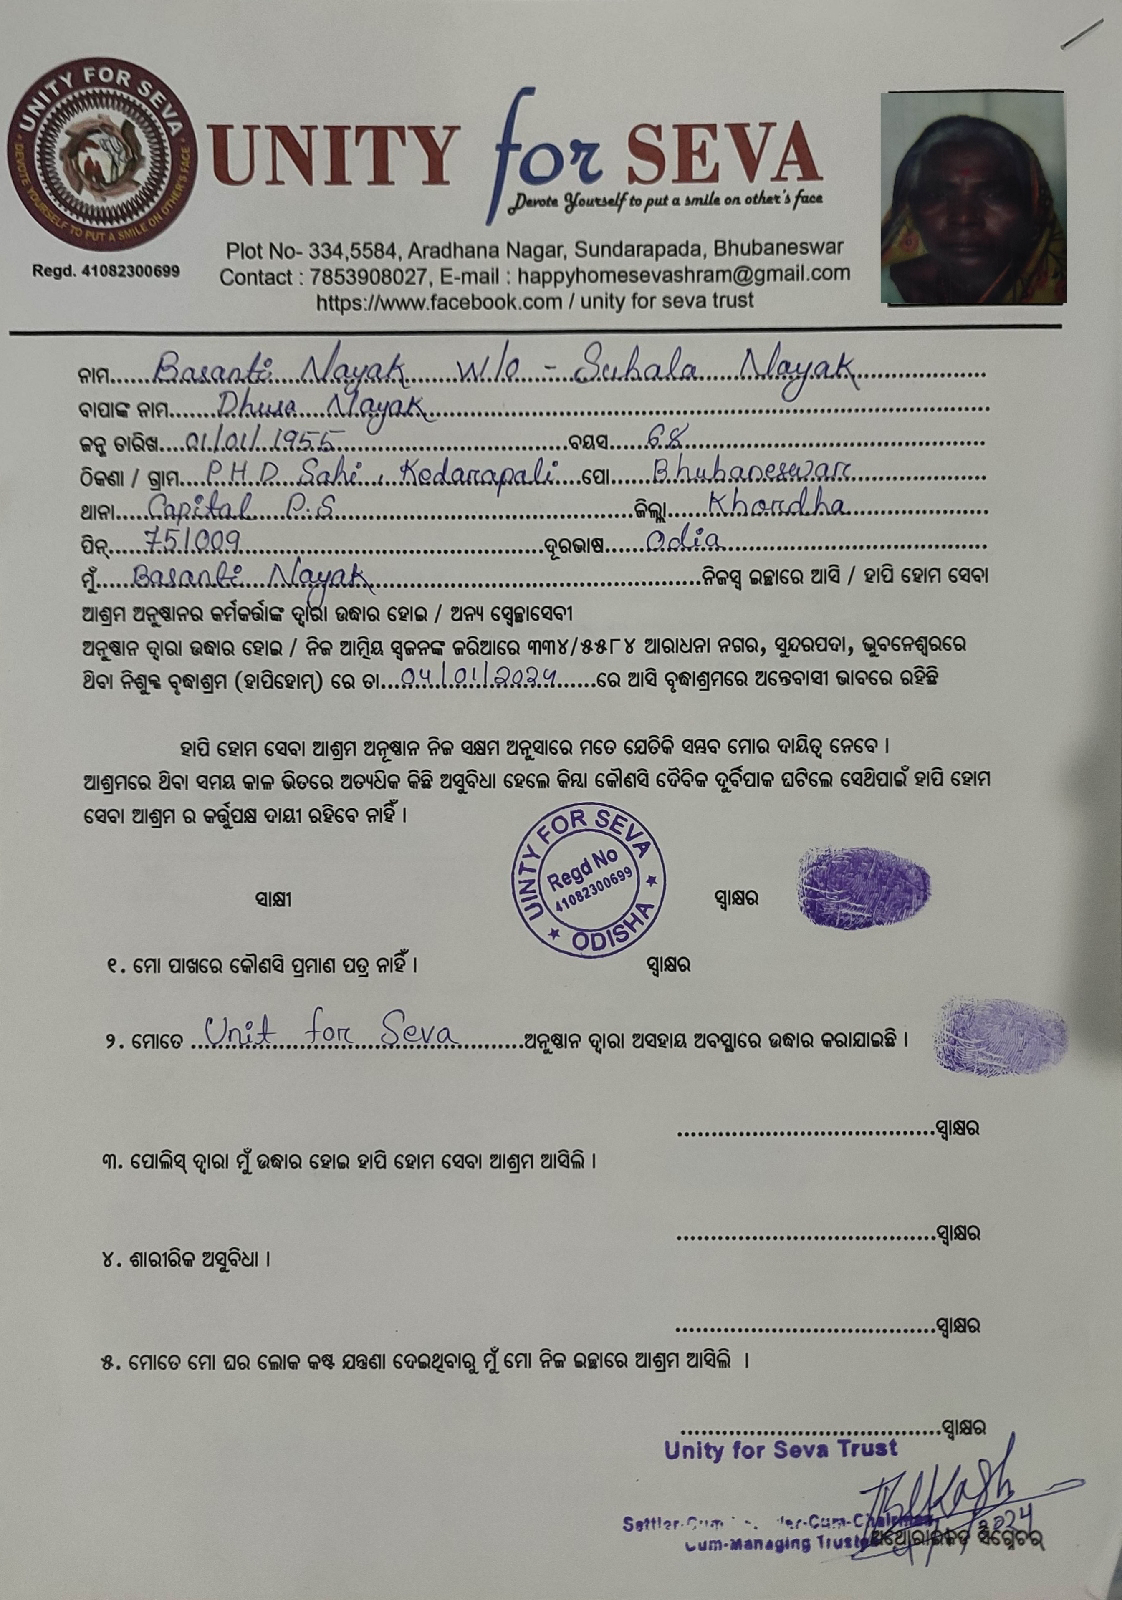 UNITY FOR SEVA
DEVOTE YOURSELF TO PUT A SMILE ON OTHER'S FACE
Regd. 41082300699
UNITY for SEVA
Devote Yourself to put a smile on other's face
Plot No- 334,5584, Aradhana Nagar, Sundarapada, Bhubaneswar
Contact : 7853908027, E-mail : happyhomesevashram@gmail.com
https://www.facebook.com / unity for seva trust
ନାମ......Basanti Nayak W/O - Suhala Nayak......
ବାପାଙ୍କ ନାମ......Dhusa Nayak......
ଜନ୍ମ ତାରିଖ...01/01/1955......ବୟସ......68......
ଠିକଣା / ଗ୍ରାମ...P.H.D Sahi, Kedarapali...ପୋ......Bhubaneswar......
ଥାନା......Capital P.S......ଜିଲ୍ଲା......Khordha......
ପିନ୍......751009......ଦୂରଭାଷ......Odia......
ମୁଁ......Basanti Nayak......ନିଜସ୍ୱ ଇଚ୍ଛାରେ ଆସି / ହାପି ହୋମ ସେବା
ଆଶ୍ରମ ଅନୁଷ୍ଠାନର କର୍ମକର୍ତ୍ତାଙ୍କ ଦ୍ୱାରା ଉଦ୍ଧାର ହୋଇ / ଅନ୍ୟ ସ୍ୱେଚ୍ଛାସେବୀ
ଅନୁଷ୍ଠାନ ଦ୍ୱାରା ଉଦ୍ଧାର ହୋଇ / ନିଜ ଆତ୍ମିୟ ସ୍ୱଜନଙ୍କ ଜରିଆରେ ୩୩୪/୫୫୮୪ ଆରାଧନା ନଗର, ସୁନ୍ଦରପଦା, ଭୁବନେଶ୍ୱରରେ
ଥିବା ନିଶୁଳ୍କ ବୃଦ୍ଧାଶ୍ରମ (ହାପିହୋମ୍) ରେ ତା...04/01/2024......ରେ ଆସି ବୃଦ୍ଧାଶ୍ରମରେ ଅନ୍ତେବାସୀ ଭାବରେ ରହିଛି
ହାପି ହୋମ ସେବା ଆଶ୍ରମ ଅନୁଷ୍ଠାନ ନିଜ ସକ୍ଷମ ଅନୁସାରେ ମତେ ଯେତିକି ସମ୍ଭବ ମୋର ଦାୟିତ୍ୱ ନେବେ ।
ଆଶ୍ରମରେ ଥିବା ସମୟ କାଳ ଭିତରେ ଅତ୍ୟଧିକ କିଛି ଅସୁବିଧା ହେଲେ କିମ୍ବା କୌଣସି ଦୈବିକ ଦୁର୍ବିପାକ ଘଟିଲେ ସେଥିପାଇଁ ହାପି ହୋମ
ସେବା ଆଶ୍ରମ ର କର୍ତ୍ତୁପକ୍ଷ ଦାୟୀ ରହିବେ ନାହିଁ ।
UINTY FOR SEVA
Regd No
41082300699
ODISHA
ସାକ୍ଷୀ
ସ୍ୱାକ୍ଷର
୧. ମୋ ପାଖରେ କୌଣସି ପ୍ରମାଣ ପତ୍ର ନାହିଁ ।
ସ୍ୱାକ୍ଷର
୨. ମୋତେ ......Unit for Seva......ଅନୁଷ୍ଠାନ ଦ୍ୱାରା ଅସହାୟ ଅବସ୍ଥାରେ ଉଦ୍ଧାର କରାଯାଇଛି ।
......ସ୍ୱାକ୍ଷର
୩. ପୋଲିସ୍ ଦ୍ୱାରା ମୁଁ ଉଦ୍ଧାର ହୋଇ ହାପି ହୋମ ସେବା ଆଶ୍ରମ ଆସିଲି ।
......ସ୍ୱାକ୍ଷର
୪. ଶାରୀରିକ ଅସୁବିଧା ।
......ସ୍ୱାକ୍ଷର
୫. ମୋତେ ମୋ ଘର ଲୋକ କଷ୍ଟ ଯନ୍ତଣା ଦେଇଥିବାରୁ ମୁଁ ମୋ ନିଜ ଇଚ୍ଛାରେ ଆଶ୍ରମ ଆସିଲି ।
......ସ୍ୱାକ୍ଷର
Unity for Seva Trust
Cum-Managing Trustee